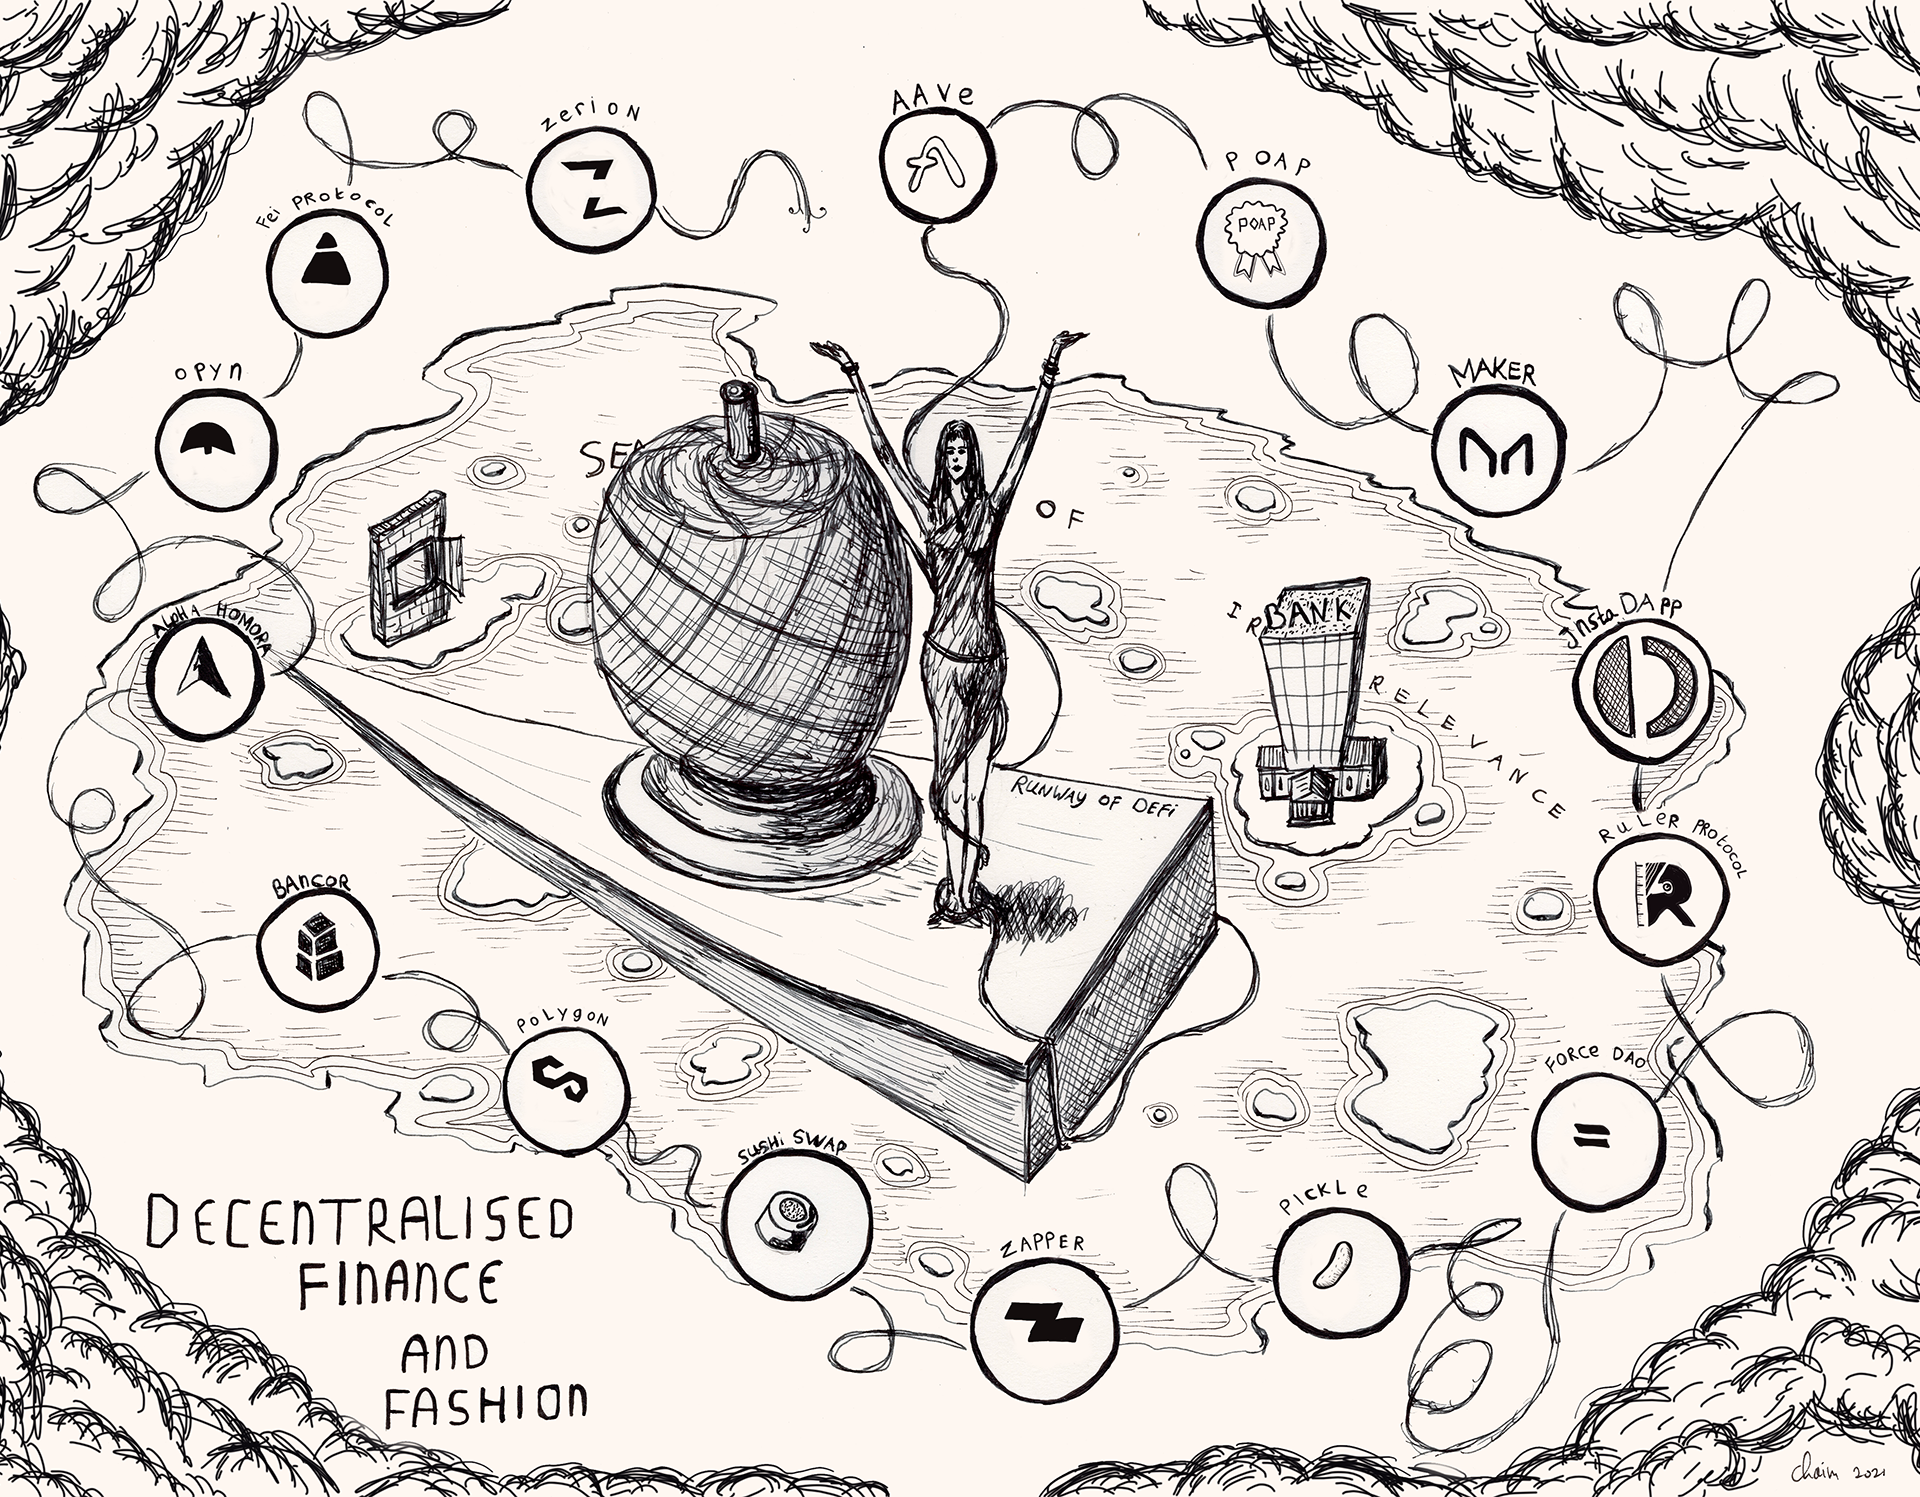 zerion
AAVe
POAP
POAP
Fei PROtocOL
OPYn
MAKER
SEA
OF
IR
BANK
RELEVANCE
InstaDAPP
ALPHA HOMORA
RUNWAY OF DEFi
RULER PROTOCOL
R
BAncOR
POLYGON
FORCe DAO
SUSHi SWAP
PICKLe
ZAPPER
DECEnTRALISED
FINAnCE
AnD
FASHIOn
Chaim 2021